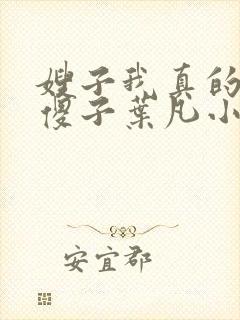 嫂子我真的
傻子葉凡小
安宜郡